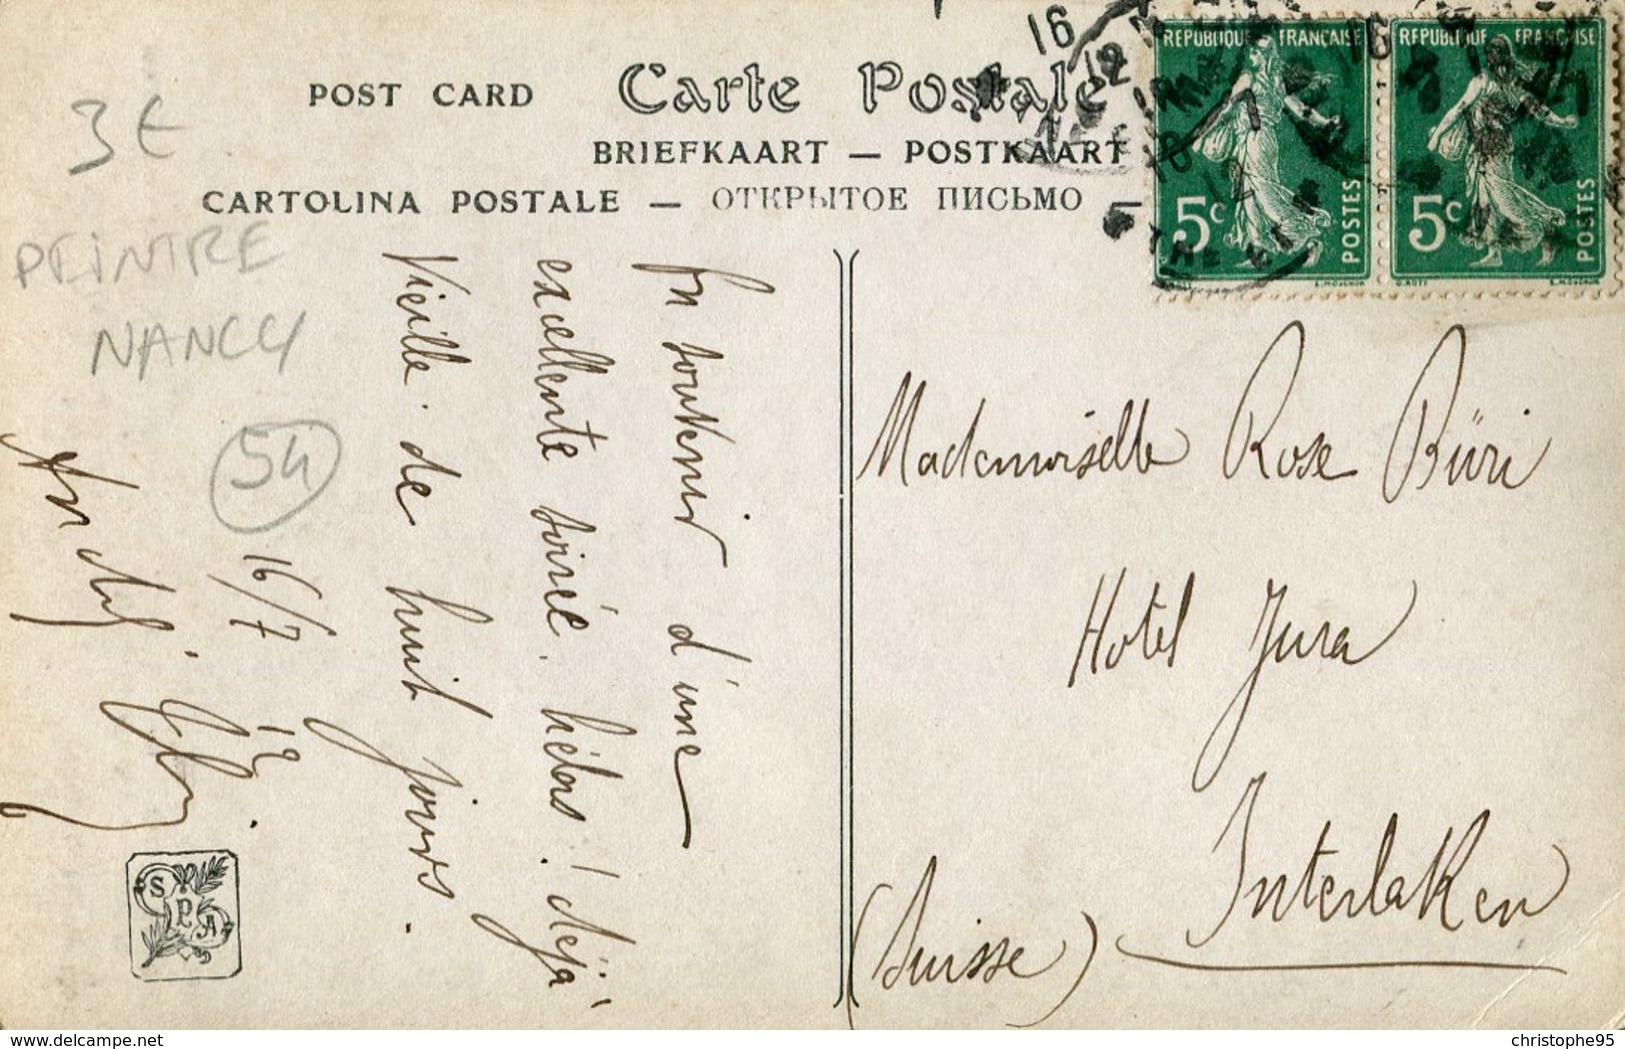 POST CARD
Carte Postale
BRIEFKAART — POSTKAART
CARTOLINA POSTALE — ОТКРЫТОЕ ПИСЬМО —
3€
PEINTRE
NANCY
54
REPUBLIQUE FRANÇAISE
5c
POSTES
REPUBLIQUE FRANÇAISE
5c
POSTES
16
12
16 7
12
En souvenir d'une
excellente soirée. hélas! déjà
Vieille de huit jours.
16/7 12.
Mademoiselle Rose Büri
Hotel Jura
Interlaken
(Suisse)
S
P
A
www.delcampe.net
christophe95